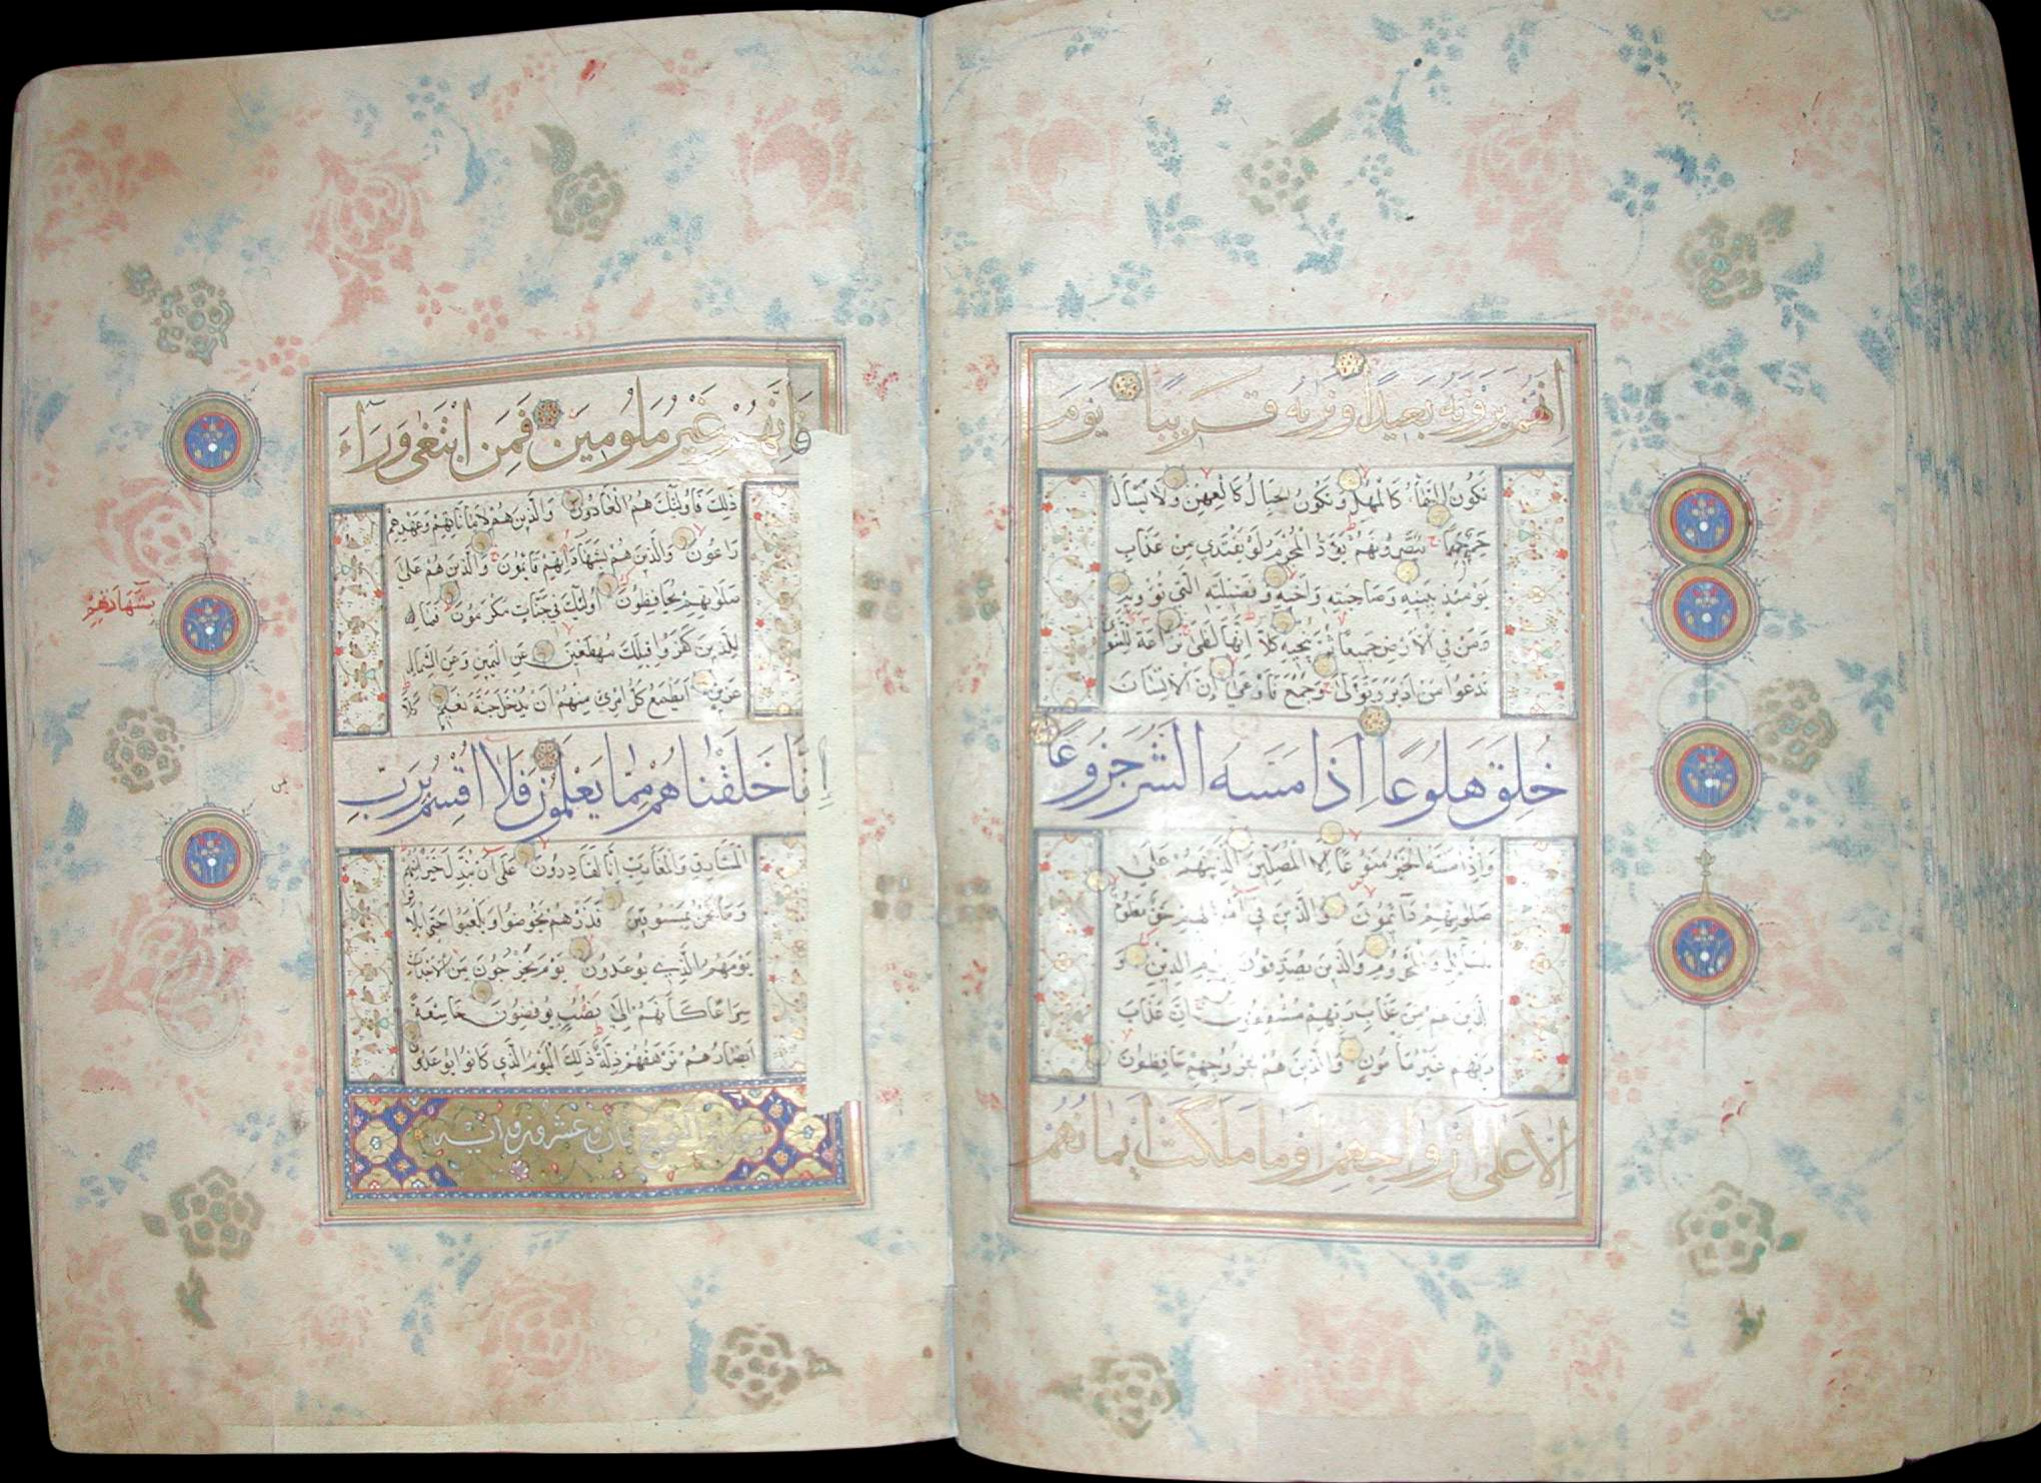 اِنَّهُمْ يَرَوْنَهُ بَعِيدًا وَنَرٰيهُ قَرِيبًا يَوْمَ
تَكُونُ السَّمَاءُ كَالْمُهْلِ وَتَكُونُ الْجِبَالُ كَالْعِهْنِ وَلَا يَسْأَلُ
حَمِيمٌ حَمِيمًا يُبَصَّرُونَهُمْ يَوَدُّ الْمُجْرِمُ لَوْ يَفْتَدِي مِنْ عَذَابِ
يَوْمِئِذٍ بِبَنِيهِ وَصَاحِبَتِهِ وَأَخِيهِ وَفَصِيلَتِهِ الَّتِي تُؤْوِيهِ
وَمَنْ فِي الْاَرْضِ جَمِيعًا ثُمَّ يُنْجِيهِ كَلَّا اِنَّهَا لَظٰى نَزَّاعَةً لِلشَّوٰى
تَدْعُوا مَنْ اَدْبَرَ وَتَوَلّٰى وَجَمَعَ فَاَوْعٰى اِنَّ الْاِنْسَانَ
خُلِقَ هَلُوعًا اِذَا مَسَّهُ الشَّرُّ جَزُوعًا
وَاِذَا مَسَّهُ الْخَيْرُ مَنُوعًا اِلَّا الْمُصَلِّينَ الَّذِينَ هُمْ عَلٰى
صَلَوتِهِمْ دَآئِمُونَ وَالَّذِينَ فِي اَمْوَالِهِمْ حَقٌّ مَعْلُومٌ
لِلسَّآئِلِ وَالْمَحْرُومِ وَالَّذِينَ يُصَدِّقُونَ بِيَوْمِ الدِّينِ وَ
الَّذِينَ هُمْ مِنْ عَذَابِ رَبِّهِمْ مُشْفِقُونَ اِنَّ عَذَابَ
رَبِّهِمْ غَيْرُ مَأْمُونٍ وَالَّذِينَ هُمْ لِفُرُوجِهِمْ حَافِظُونَ
اِلَّا عَلٰى اَزْوَاجِهِمْ اَوْ مَا مَلَكَتْ اَيْمَانُهُمْ
فَاِنَّهُمْ غَيْرُ مَلُومِينَ فَمَنِ ابْتَغٰى وَرَآءَ
ذٰلِكَ فَاُولٰئِكَ هُمُ الْعَادُونَ وَالَّذِينَ هُمْ لِاَمَانَاتِهِمْ وَعَهْدِهِمْ
رَاعُونَ وَالَّذِينَ هُمْ بِشَهَادَاتِهِمْ قَآئِمُونَ وَالَّذِينَ هُمْ عَلٰى
صَلَوتِهِمْ يُحَافِظُونَ اُولٰئِكَ فِي جَنَّاتٍ مُكْرَمُونَ فَمَالِ
بشهادتهم
الَّذِينَ كَفَرُوا قِبَلَكَ مُهْطِعِينَ عَنِ الْيَمِينِ وَعَنِ الشِّمَالِ
عِزِينَ اَيَطْمَعُ كُلُّ امْرِئٍ مِنْهُمْ اَنْ يُدْخَلَ جَنَّةَ نَعِيمٍ كَلَّا
اِنَّا خَلَقْنَاهُمْ مِمَّا يَعْلَمُونَ فَلَا اُقْسِمُ بِرَبِّ
الْمَشَارِقِ وَالْمَغَارِبِ اِنَّا لَقَادِرُونَ عَلٰى اَنْ نُبَدِّلَ خَيْرًا مِنْهُمْ
وَمَا نَحْنُ بِمَسْبُوقِينَ فَذَرْهُمْ يَخُوضُوا وَيَلْعَبُوا حَتّٰى يُلَاقُوا
يَوْمَهُمُ الَّذِي يُوعَدُونَ يَوْمَ يَخْرُجُونَ مِنَ الْاَجْدَاثِ
سِرَاعًا كَاَنَّهُمْ اِلٰى نُصُبٍ يُوفِضُونَ خَاشِعَةً
اَبْصَارُهُمْ تَرْهَقُهُمْ ذِلَّةٌ ذٰلِكَ الْيَوْمُ الَّذِي كَانُوا يُوعَدُونَ
سورة نوح ثمان وعشرون آية